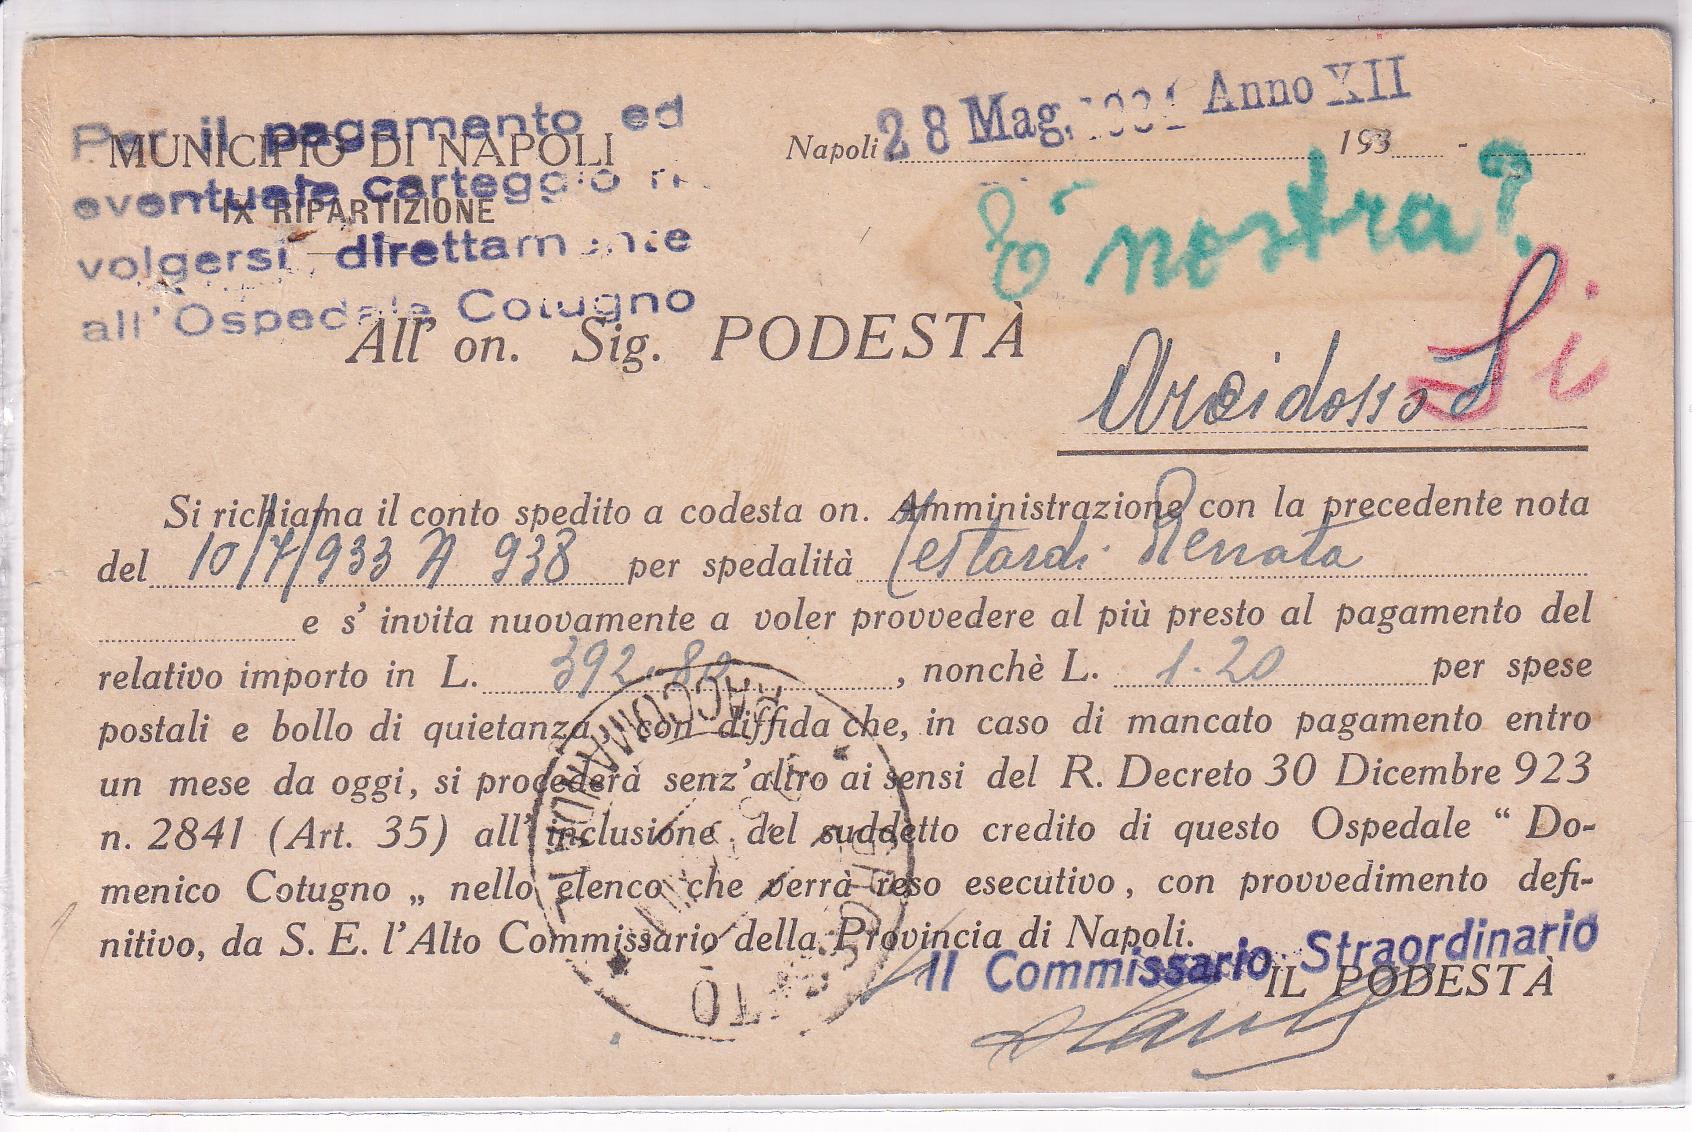 Per il pagamento ed
MUNICIPIO DI NAPOLI
eventuale carteggio
IX RIPARTIZIONE
volgersi direttamente
all'Ospedale Cotugno
Napoli 28 Mag. 1934 Anno XII 193 -
È nostra?
Si
All' on. Sig. PODESTÀ
Arcidosso
Si richiama il conto spedito a codesta on. Amministrazione con la precedente nota
del 10/7/933 N 938 per spedalità Testardi Renata
e s' invita nuovamente a voler provvedere al più presto al pagamento del
relativo importo in L. 392.80, nonchè L. 1.20 per spese
postali e bollo di quietanza, con diffida che, in caso di mancato pagamento entro
un mese da oggi, si procederà senz'altro ai sensi del R. Decreto 30 Dicembre 923
n. 2841 (Art. 35) all' inclusione del suddetto credito di questo Ospedale “ Do-
menico Cotugno „ nello elenco che verrà reso esecutivo, con provvedimento defi-
nitivo, da S. E. l'Alto Commissario della Provincia di Napoli.
Il Commissario Straordinario
IL PODESTÀ